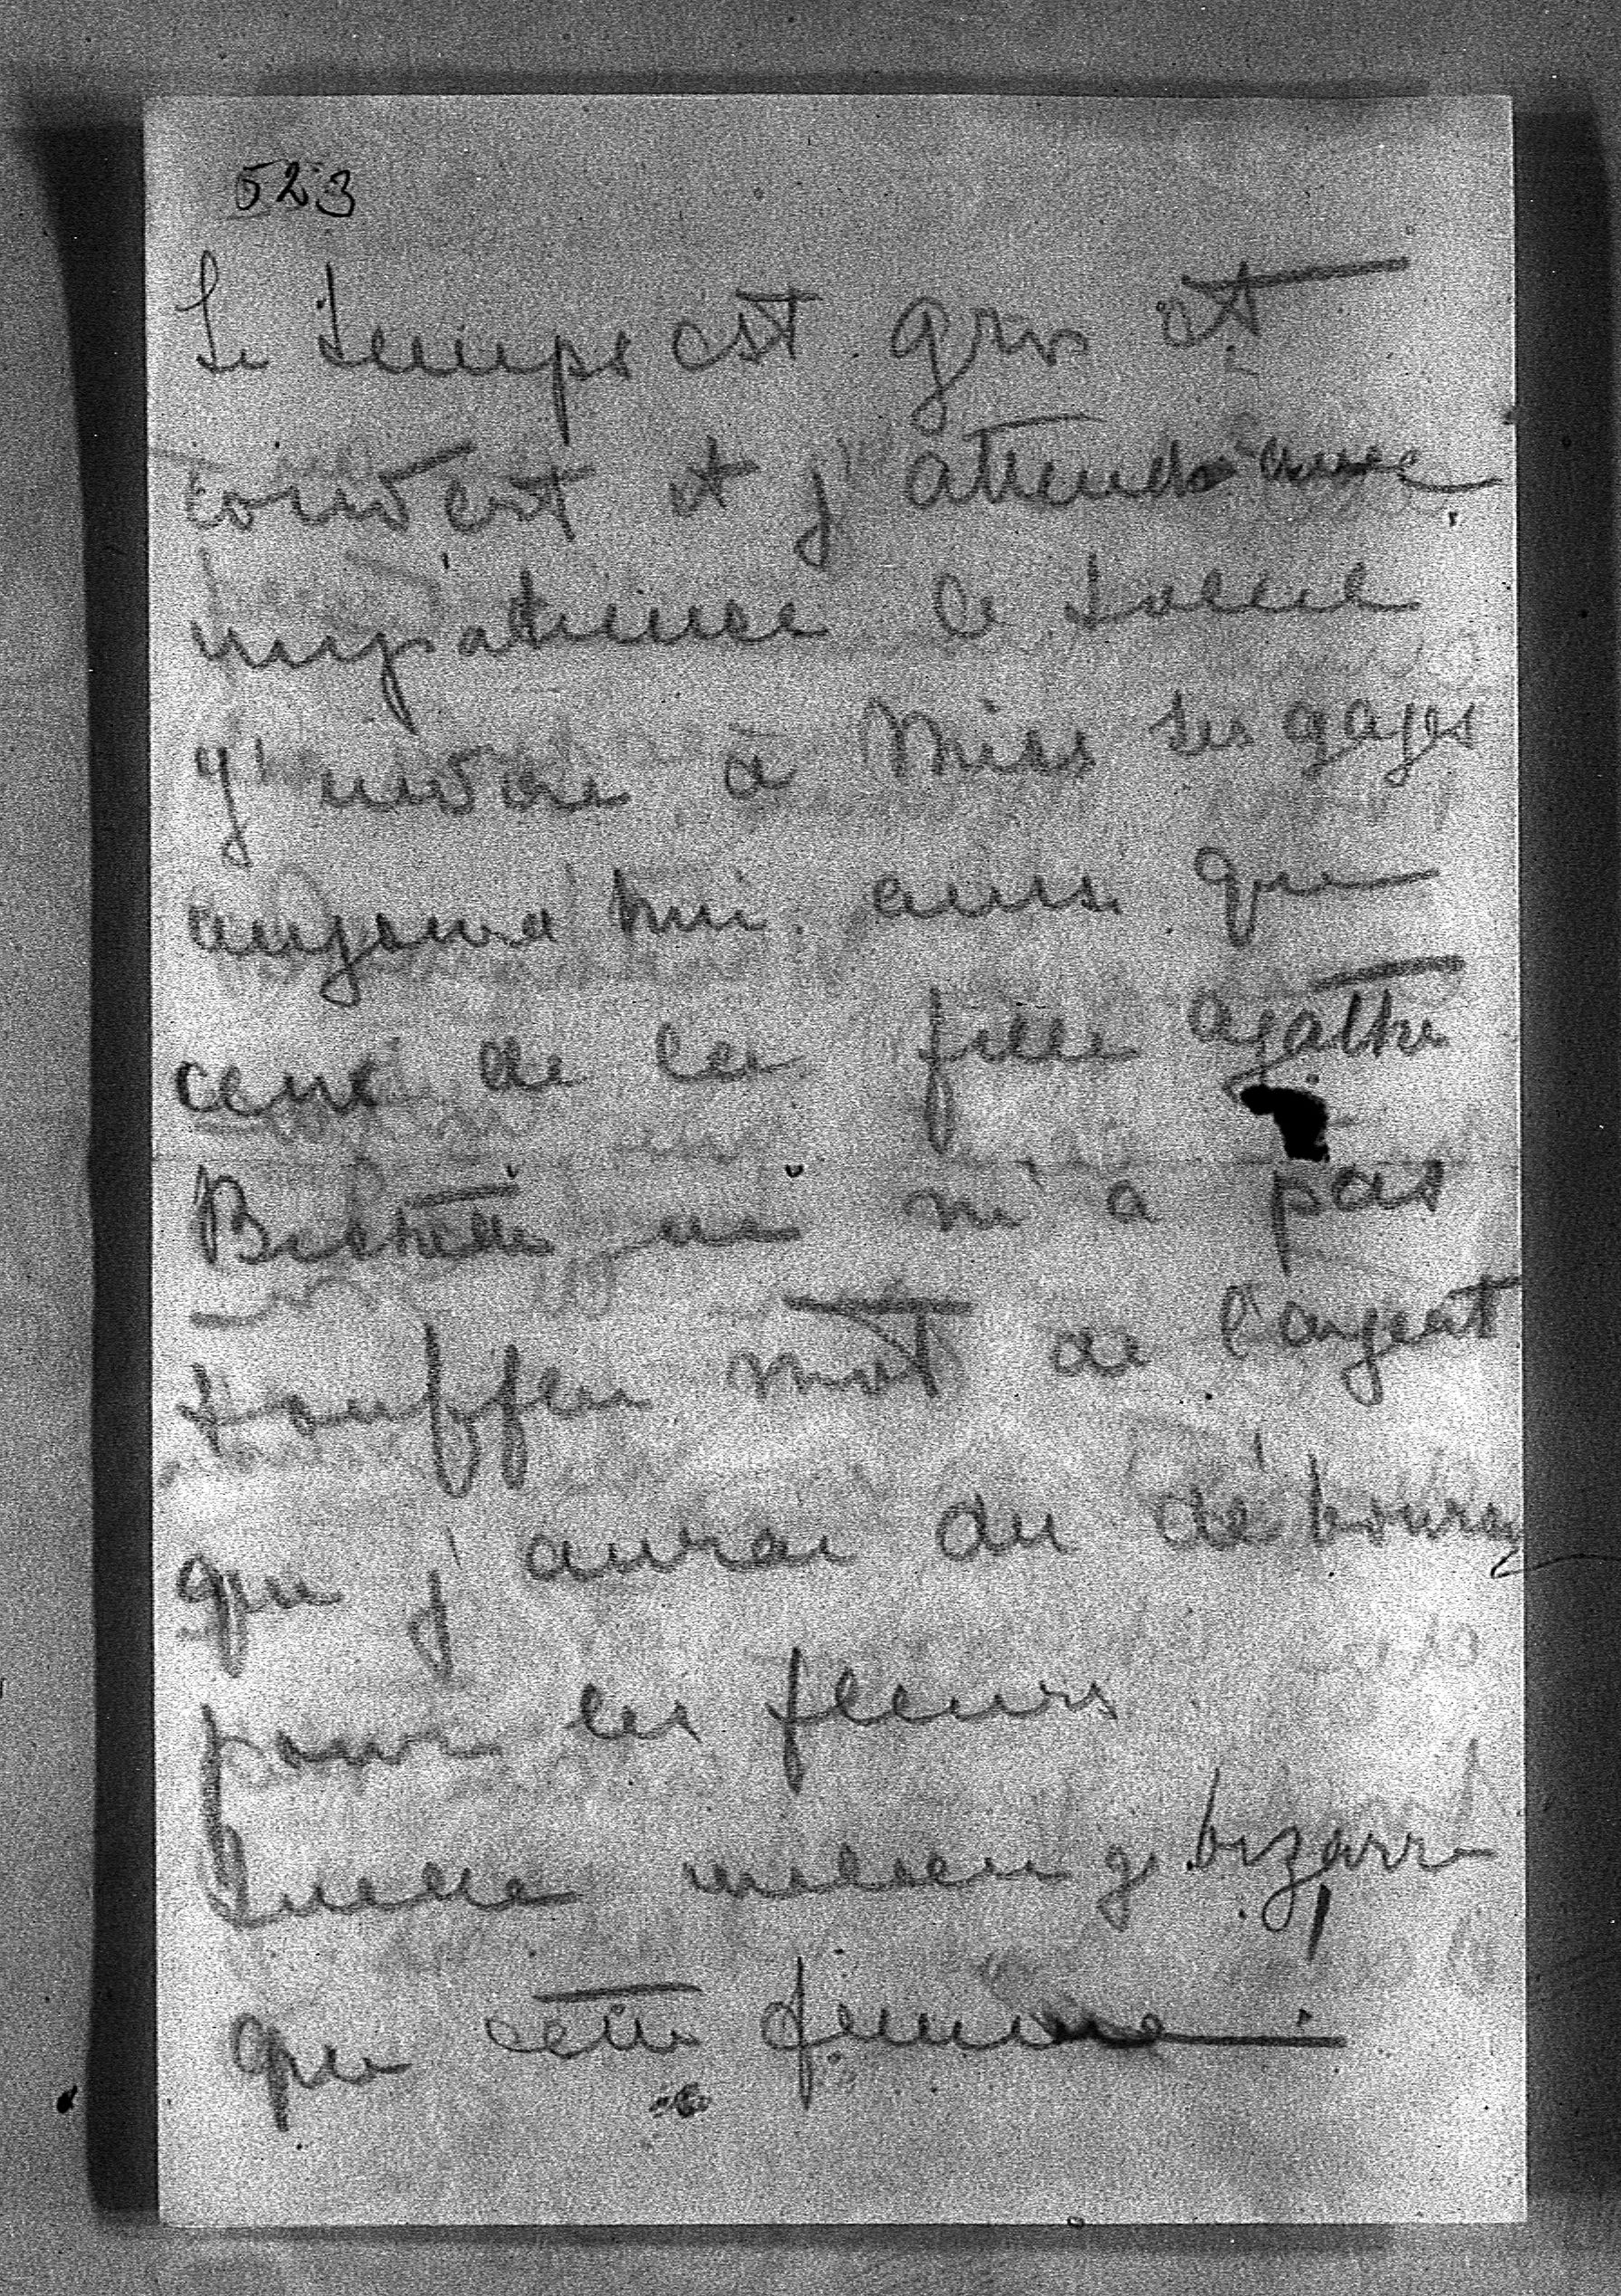 523
Le temps est gris et
couvert et j'attends avec
impatience le soleil
J'envoie à Miss ses gages
aujourd'hui ainsi que
ceux de la fille Agathe
qui m'a pas
souffler mot de l'argent
que j'aurai du débourcy
pour les fleurs
Quelle melange bizarre
que cette femme